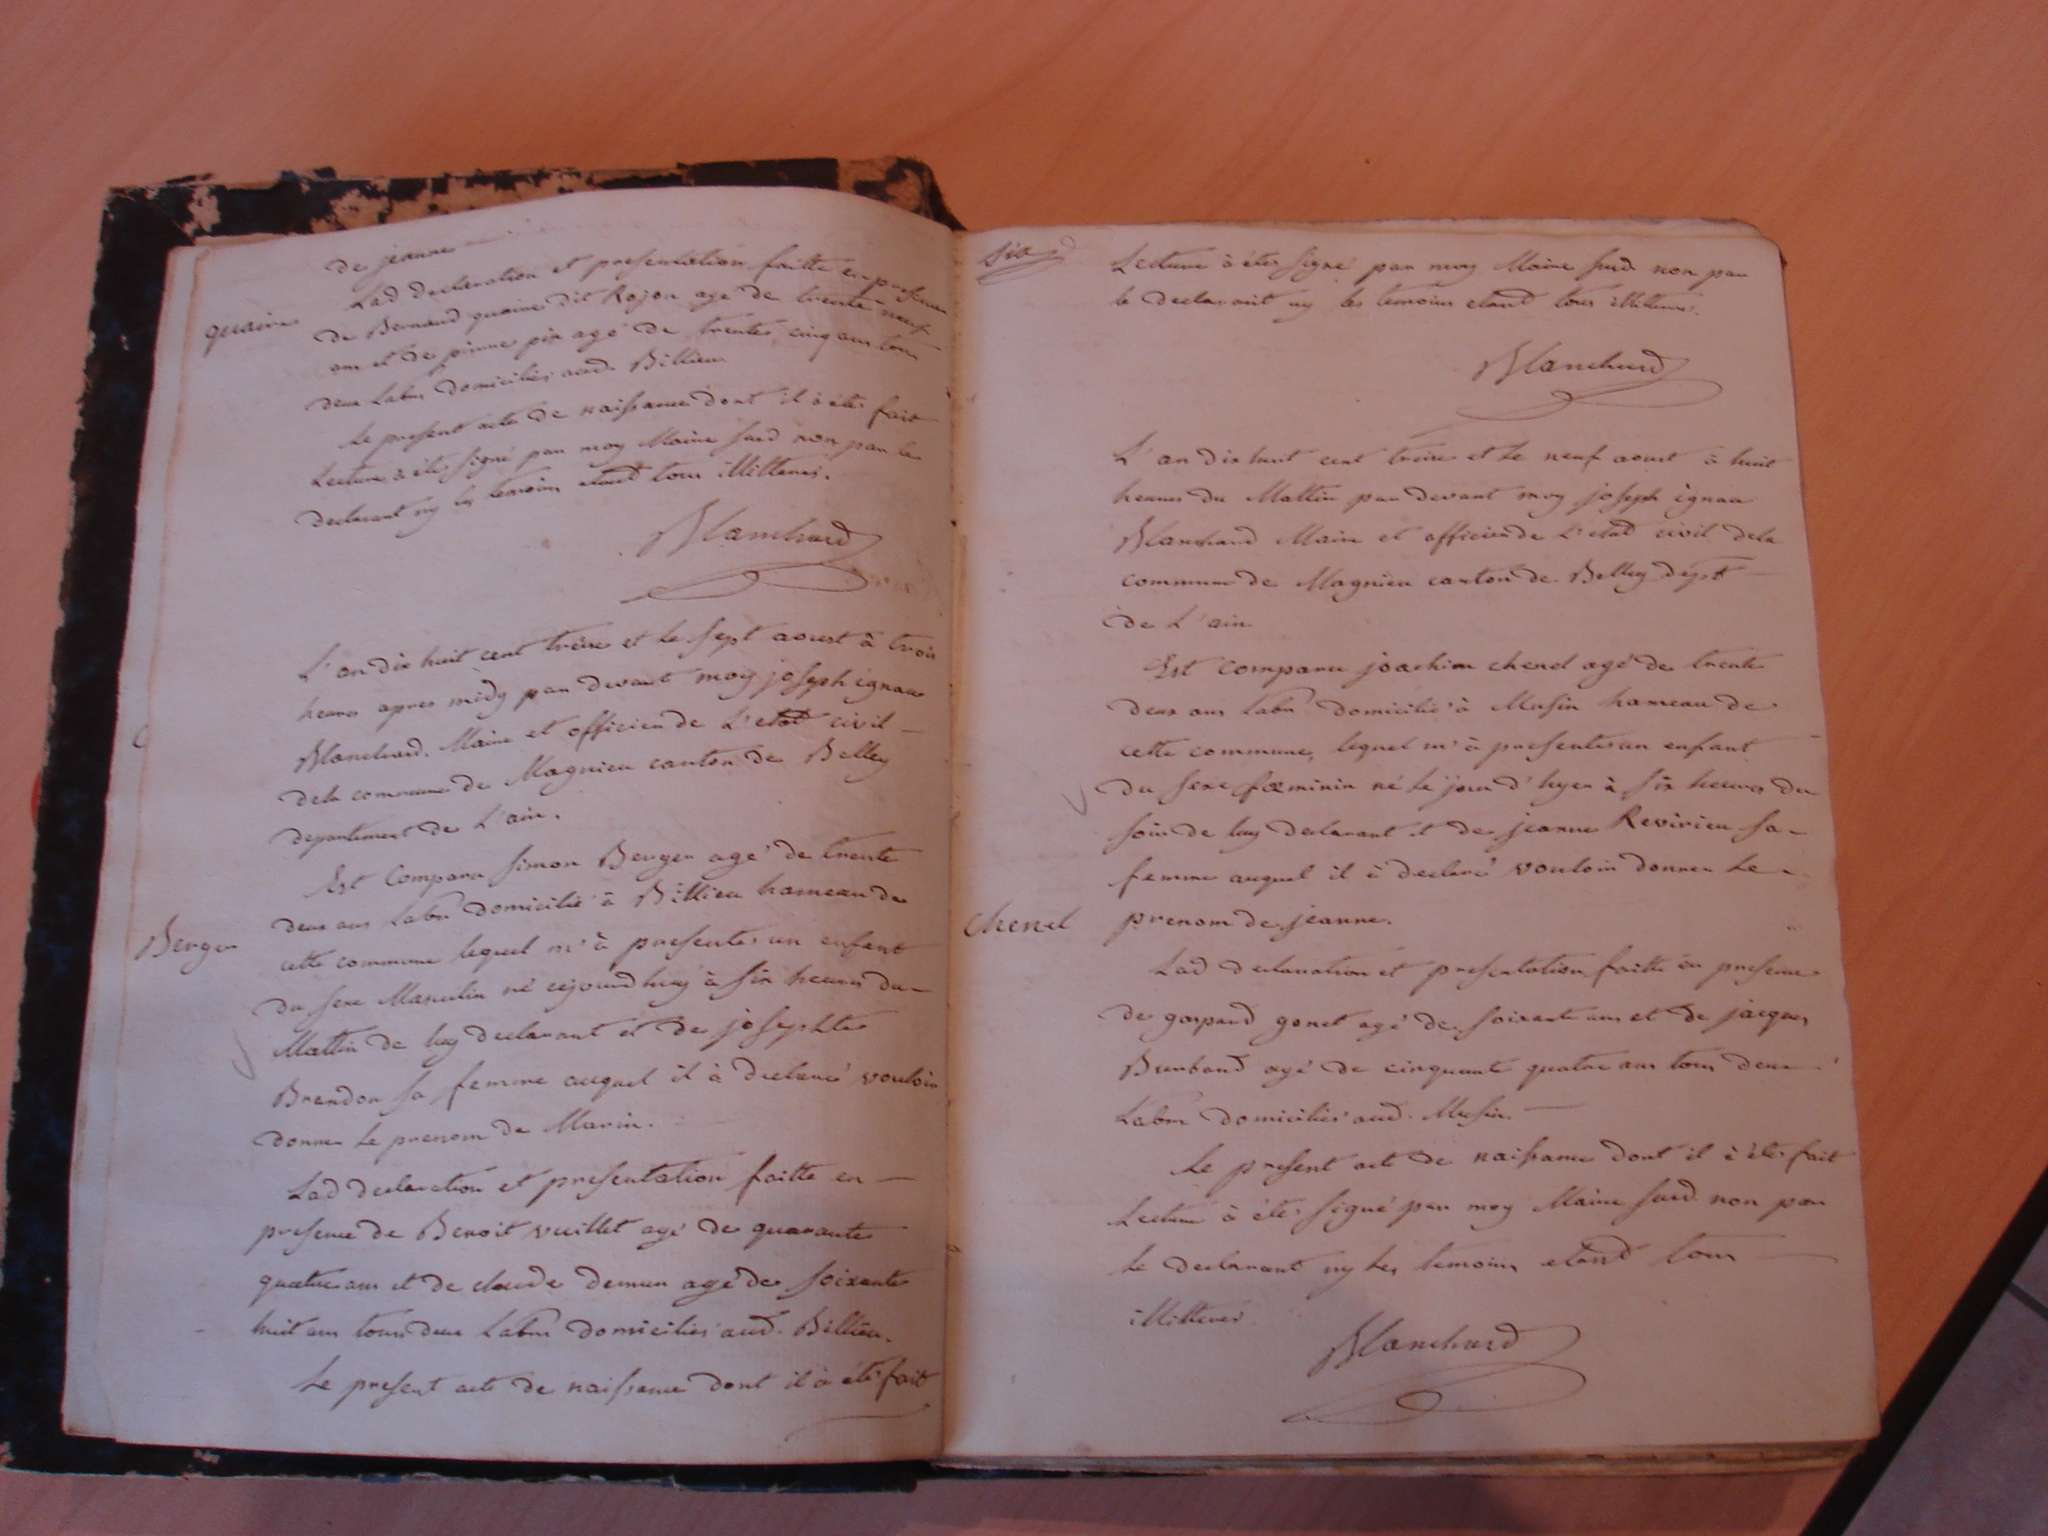 de jeanne
Lad declaration et presentation faitte en presence
quaire
de Bernard quaire dit Rojon agé de trente neuf
ans et de pierre pix agé de trente cinq ans tous
deux Labrs domiciliés aud. Billieu
Le present acte de naissance dont il à étés fait
Lecture à étés signé par moy Maire susd non par le
declarant ny les temoins etand tous illitterés.
Blanchard
L'an dix huit cent treize et le sept aoust à trois
heures apres midy par devant moy joseph ignace
Blanchard. Maire et officier de L'etat civil
dela commune de Magnieu canton de Belley
departement de L'ain.
Est Comparu simon Berger agé de trente
deux ans Labr domicilié à Billieu hameau de
Berger
cette commune lequel m'à presentés un enfant
du sexe Masculin né cejourdhuy à six heures du
Mattin de luy declarant et de josephte
Brendon sa femme auquel il à declaré vouloir
donner le prenom de Marin.
Lad declaration et presentation faitte en
presence de Benoit vuillet agé de quarante
quatre ans et de claude demeur agé de soixante
huit ans tous deux Labrs domiciliés aud. Billieu.
Le present acte de naissance dont il à étés fait
six
Lecture à étés signé par moy Maire susd non par
le declarant ny les temoins etand tous illitterés.
Blanchard
L'an dix huit cent treize et le neuf aoust à huit
heures du Mattin par devant moy joseph ignace
Blanchard Maire et officier de L'etat civil dela
commune de Magnieu canton de Belley dépt
de L'ain
Est comparu joachim chenel agé de trente
deux ans Labr domicilié à Musin hameau de
cette commune, lequel m'à presentés un enfant
du sexe fœminin né le jour d'hyer à six heures du
soir de luy declarant et de jeanne Revirieu sa
femme auquel il à declaré vouloir donner Le
chenel
prenom de jeanne.
Lad declaration et presentation faitte en presence
de gaspard gonet agé de soixante ans et de jacques
Burband agé de cinquante quatre ans tous deux
Labrs domiciliés aud. Musin.
Le present acte de naissance dont il à étés fait
Lecture à étés signé par moy Maire susd. non par
Le declarant ny les temoins etand tous
illitterés
Blanchard